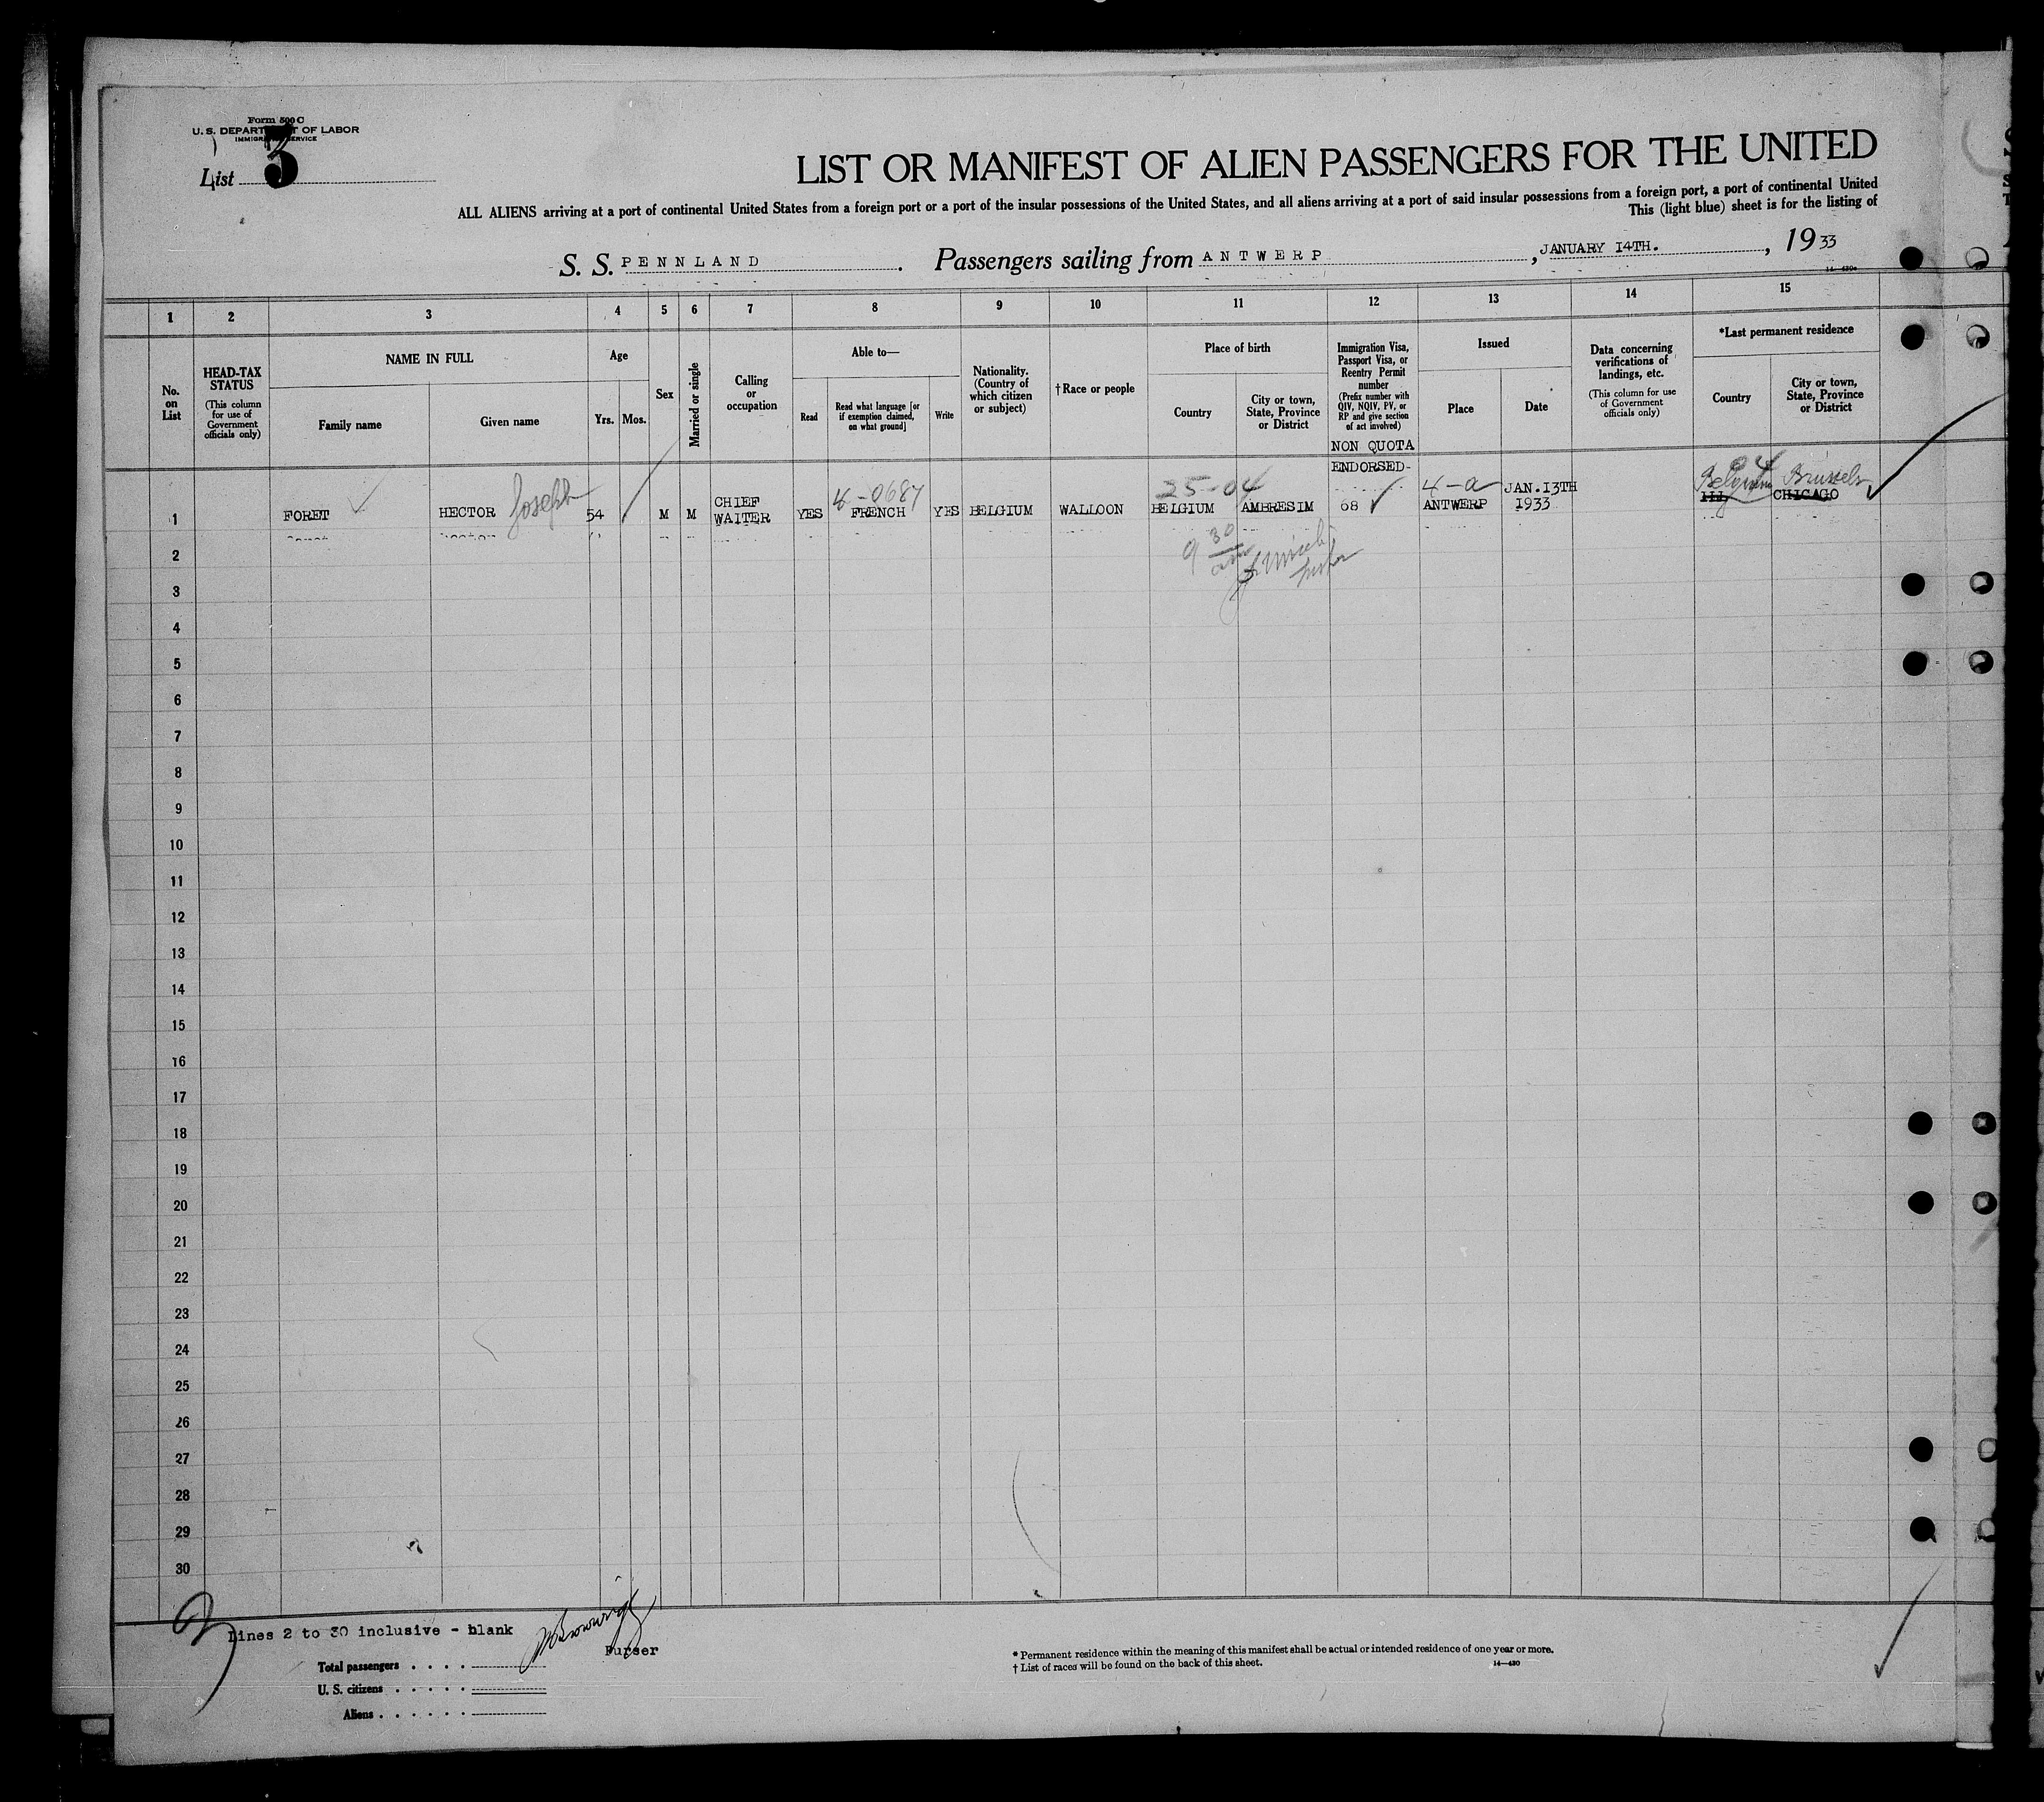 Form 500 C
U. S. DEPARTMENT OF LABOR
IMMIGRATION SERVICE
List 3
LIST OR MANIFEST OF ALIEN PASSENGERS FOR THE UNITED
ALL ALIENS arriving at a port of continental United States from a foreign port or a port of the insular possessions of the United States, and all aliens arriving at a port of said insular possessions from a foreign port, a port of continental United
This (light blue) sheet is for the listing of
S. S. PENNLAND. Passengers sailing from ANTWERP, JANUARY 14TH., 1933
1 2 3 4 5 6 7 8 9 10 11 12 13 14 15
No. on List
HEAD-TAX STATUS
(This column for use of Government officials only)
NAME IN FULL
Family name
Given name
Age
Yrs. Mos.
Sex
Married or single
Calling or occupation
Able to—
Read
Read what language [or if exemption claimed, on what ground]
Write
Nationality. (Country of which citizen or subject)
†Race or people
Place of birth
Country
City or town, State, Province or District
Immigration Visa, Passport Visa, or Reentry Permit number
(Prefix number with QIV, NQIV, PV, or RP and give section of act involved)
Issued
Place
Date
Data concerning verifications of landings, etc.
(This column for use of Government officials only)
*Last permanent residence
Country
City or town, State, Province or District
NON QUOTA
ENDORSED-
4-0687 25-04 4-a 04
Belgium Brussels
1 FORET HECTOR Joseph 54 M M CHIEF WAITER YES FRENCH YES BELGIUM WALLOON BELGIUM AMBRESIM 68 ANTWERP JAN.13TH 1933 Ill, CHICAGO
9 30 am
2
3
4
5
6
7
8
9
10
11
12
13
14
15
16
17
18
19
20
21
22
23
24
25
26
27
28
29
30
3
Lines 2 to 30 inclusive - blank
Purser
Total passengers . . . .
U. S. citizens . . . . .
Aliens . . . . . .
* Permanent residence within the meaning of this manifest shall be actual or intended residence of one year or more.
† List of races will be found on the back of this sheet.
14—430